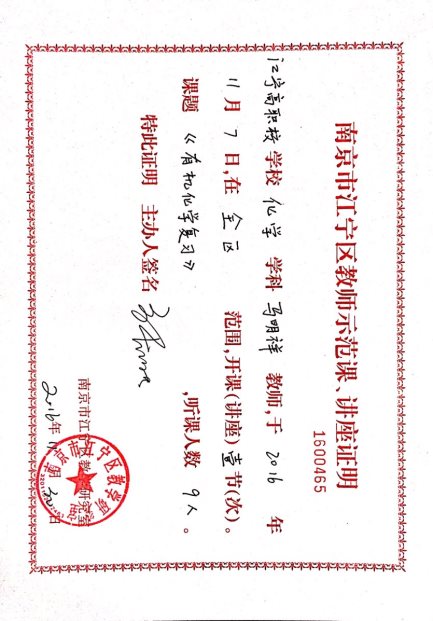 南京市江宁区教师示范课、讲座证明
1600465
江宁高职校 学校 化学 学科 马明祥 教师,于 2016 年
11 月 7 日,在 全区 范围,开课(讲座) 壹 节(次)。
课题 《有机化学复习》 ,听课人数 9人 。
特此证明 主办人签名
南京市江宁区教学研究室
2016年11月